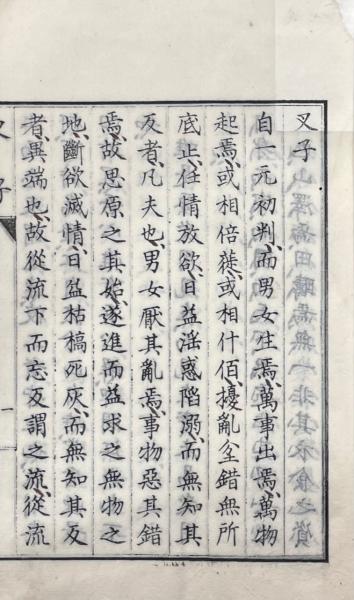 叉子
自一元初判、而男女生焉、萬事出焉、萬物
起焉、或相倍蓰、或相什佰、擾亂全錯無所
底止、任情放欲、日益淫惑陷溺、而無知其
反者、凡夫也、男女厭其亂焉、事物惡其錯
焉、故思原之其始、遂進而益求之無物之
地、斷欲滅情、日益枯槁死灰、而無知其反
者、異端也、故從流下而忘反謂之流、從流
叉子
一